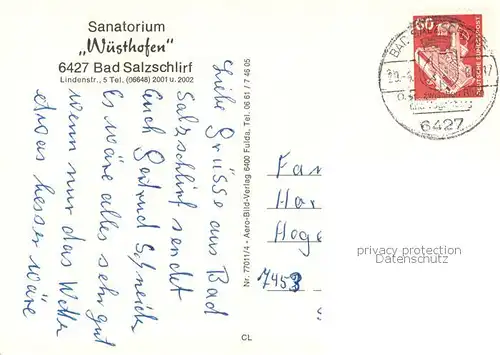 Sanatorium
„Wüsthofen"
6427 Bad Salzschlirf
Lindenstr., 5 Tel. (06648) 2001 u. 2002
Liebe Grüsse aus Bad
Salzschlirf sendet
Euch Gertrud Schneider
Es wäre alles sehr gut
wenn nur das Wetter
etwas besser wäre
Nr. 77011/4 - Aero-Bild-Verlag, 6400 Fulda, Tel. 06 61 / 7 46 05
60
DEUTSCHE BUNDESPOST
BAD SALZSCHLIRF
6427
Fam
Har
Hoge
7453
privacy protection
Datenschutz
CL